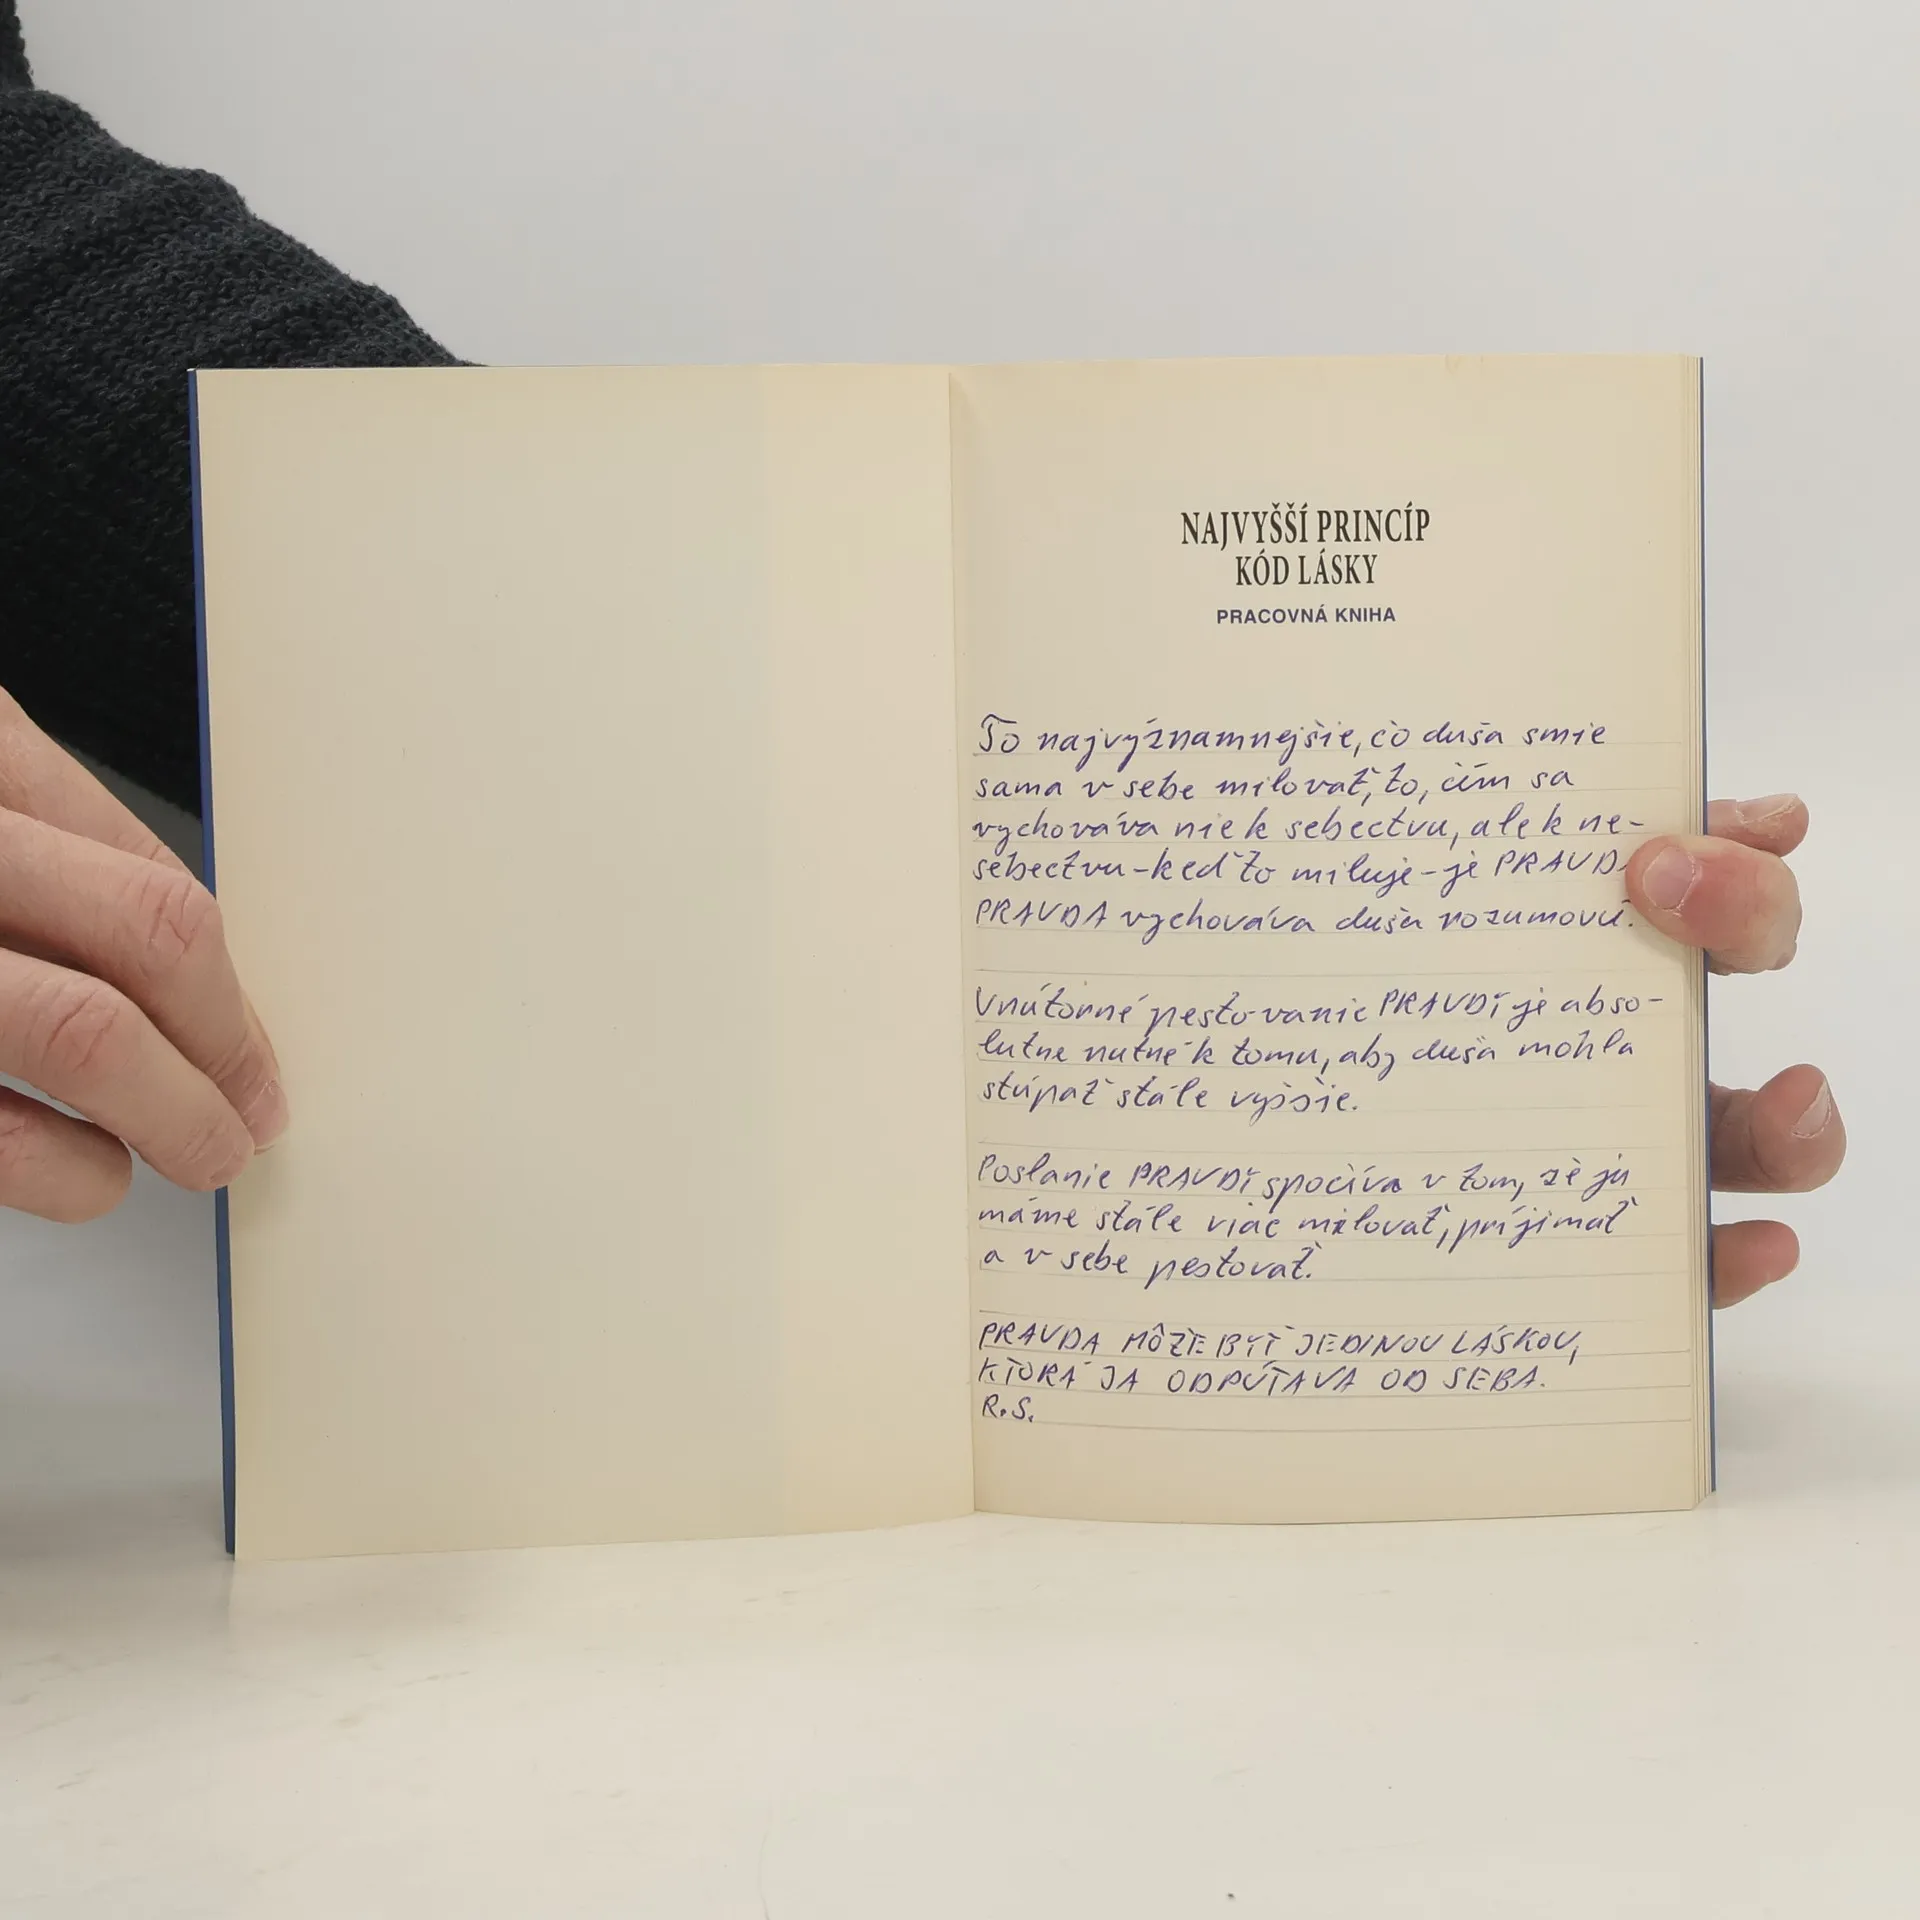 NAJVYŠŠÍ PRINCÍP
KÓD LÁSKY
PRACOVNÁ KNIHA
To najvýznamnejšie, čo duša smie
sama v sebe milovať, to, čím sa
vychováva nie k sebectvu, ale k ne-
sebectvu - keď to miluje - je PRAVDA
PRAVDA vychováva dušu rozumovú.
Vnútorné pestovanie PRAVDY je abso-
lutne nutné k tomu, aby duša mohla
stúpať stále vyššie.
Poslanie PRAVDY spočíva v tom, že ju
máme stále viac milovať, príjimať
a v sebe pestovať.
PRAVDA MÔŽE BYŤ JEDINOU LÁSKOU,
KTORÁ JA ODPÚTAVA OD SEBA.
R.S.